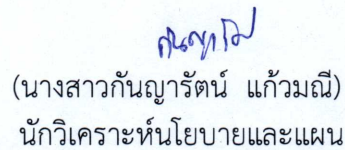 กันญารัตน์
(นางสาวกันญารัตน์ แก้วมณี)
นักวิเคราะห์นโยบายและแผน